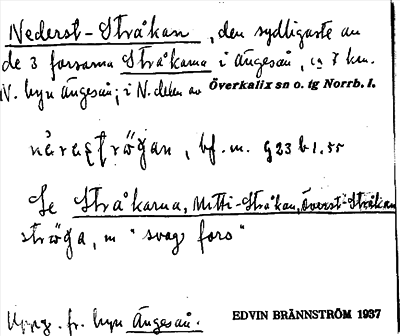 Nederst-Stråkan, den sydligaste av
de 3 forsarna Stråkarna i Ängesån, c:a 7 km.
N. byn Ängesån; i N. delen av Överkalix sn o. tg Norrb. l.
bf. m. G23 b 1.55
Se Stråkarna, Mitti-Stråkan, Överst-Stråkan
m "svag fors"
Uppg. fr. byn Ängesån.
EDVIN BRÄNNSTRÖM 1937